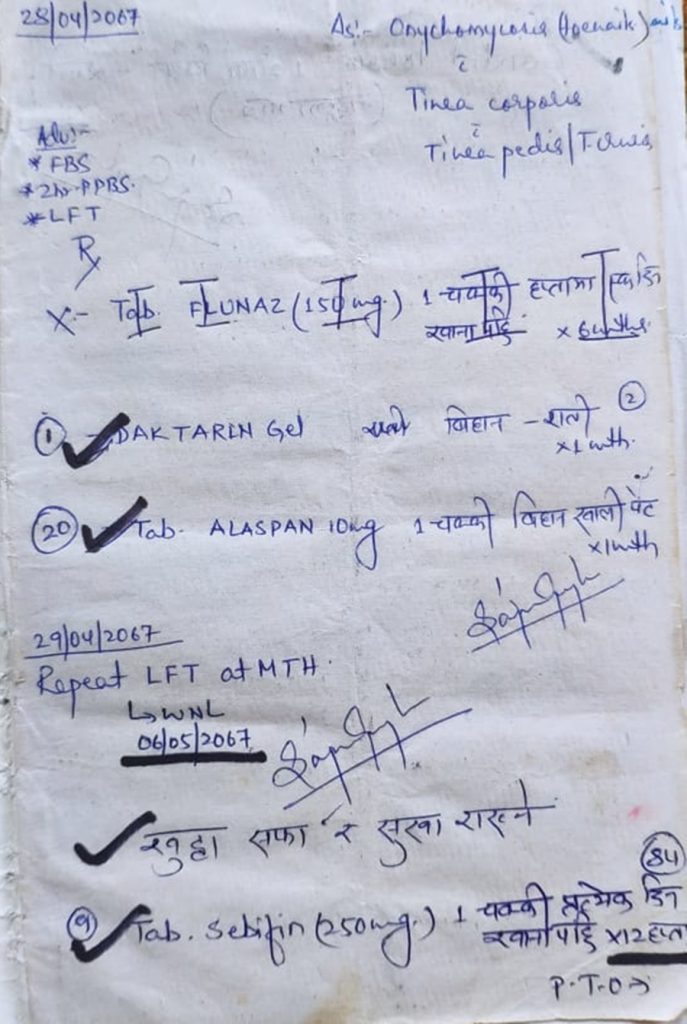 28/04/2067
As:- Onychomycosis (toenails)
c̄
Tinea corporis
c̄
Tinea pedis/T. Cruris
Adv:-
* FBS
* 2hr PPBS.
* LFT
Rx
X- Tab. FLUNAZ (150mg.) 1 चक्की हप्तामा एक दिन
खाना पछि x 6 mths.
① - DAKTARIN Gel बिहान - राती ②
x 1 mth.
⑳ - Tab. ALASPAN 10mg 1 चक्की बिहान खाली पेट
x 1 mth
29/04/2067
Repeat LFT at MTH.
↳ WNL
06/05/2067
खुट्टा सफा र सुख्खा राख्ने
84
⑨ Tab. Sebifin (250mg.) 1 चक्की प्रत्येक दिन
खाना पछि x 12 हप्ता
P.T.O →